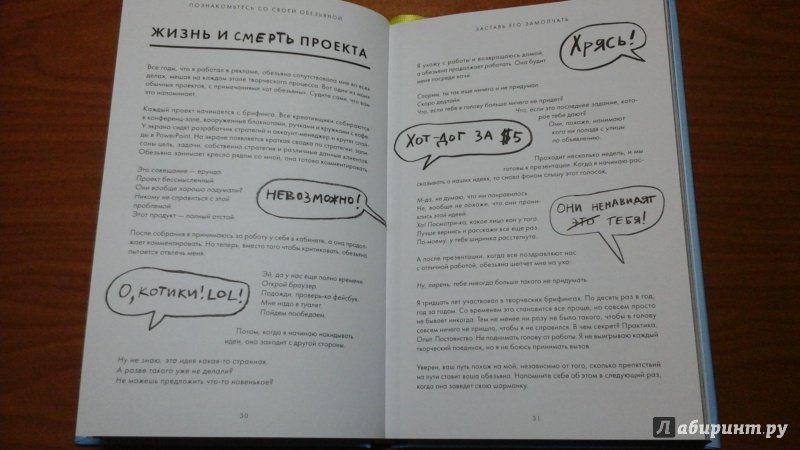 ПОЗНАКОМЬТЕСЬ СО СВОЕЙ ОБЕЗЬЯНОЙ
ЖИЗНЬ И СМЕРТЬ ПРОЕКТА
Все годы, что я работал в рекламе, обезьяна сопутствовала мне во всех
делах, мешая на каждом этапе творческого процесса. Вот один из моих
обычных проектов, с примечаниями «от обезьяны». Судите сами, что вам
это напоминает.
Каждый проект начинается с брифинга. Все креативщики собираются
в конференц-зале, вооруженные блокнотами, ручками и кружками с кофе.
У экрана сидят разработчик стратегий и аккаунт-менеджер и крутят слай-
ды в PowerPoint. На экране появляется краткая сводка по стратегии, запи-
саны цель, задачи, собственно стратегия и различные данные клиентов.
Обезьяна занимает кресло рядом со мной, она готова комментировать.
Это совещание — ерунда.
Проект бессмысленный.
Они вообще хорошо подумали?
Никому не справиться с этой
проблемой.
Этот продукт — полный отстой.
НЕВОЗМОЖНО!
После собрания я принимаюсь за работу у себя в кабинете, а она продол-
жает комментировать. Но теперь, вместо того чтобы критиковать, обезьяна
пытается отвлечь меня.
О, КОТИКИ! LOL!
Эй, да у нас еще полно времени.
Открой браузер.
Подожди, проверь-ка фейсбук.
Мне надо в туалет.
Пойдем пообедаем.
Потом, когда я начинаю накидывать
идеи, она заходит с другой стороны.
Ну не знаю, эта идея какая-то странная.
А разве такого уже не делали?
Не можешь предложить что-то новенькое?
30
ЗАСТАВЬ ЕГО ЗАМОЛЧАТЬ
Я ухожу с работы и возвращаюсь домой,
а обезьяна продолжает работать. Она будит
меня посреди ночи.
ХРЯСЬ!
Спорим, ты так еще ничего и не придумал.
Скоро дедлайн.
Что, если тебе в голову больше ничего не придет?
Что, если это последнее задание, кото-
рое тебе дают?
Они, похоже, нанимают
кого ни попадя с улицы
по объявлению.
ХОТ-ДОГ ЗА $5
Проходит несколько недель, и мы
готовы к презентации. Когда я начинаю рас-
сказывать о наших идеях, то снова фоном слышу этот голосок.
М-да, не думаю, что им понравилось.
Не, вообще не похоже, что они прони-
клись этой идеей.
Хо! Посмотри-ка, какое лицо вон у того.
Лучше вернись и расскажи все еще раз.
По-моему, у тебя ширинка расстегнута.
ОНИ НЕНАВИДЯТ
ЭТО ТЕБЯ!
А после презентации, когда все поздравляют нас
с отличной работой, обезьяна шепчет мне на ухо:
Ну, парень, тебе никогда больше такого не придумать.
Я тридцать лет участвовал в творческих брифингах. По десять раз в год,
год за годом. Со временем это становится все проще, но совсем просто
не бывает никогда. Тем не менее ни разу не было такого, чтобы в голову
совсем ничего не пришло, чтобы я не справился. В чем секрет? Практика.
Опыт. Постоянство. Не поднимать голову от работы. Я не выигрываю каждый
творческий поединок, но я не боюсь принимать вызов.
Уверен, ваш путь похож на мой, независимо от того, сколько препятствий
на пути ставит ваша обезьяна. Напомните себе об этом в следующий раз,
когда она заведет свою шарманку.
31
Лабиринт.ру